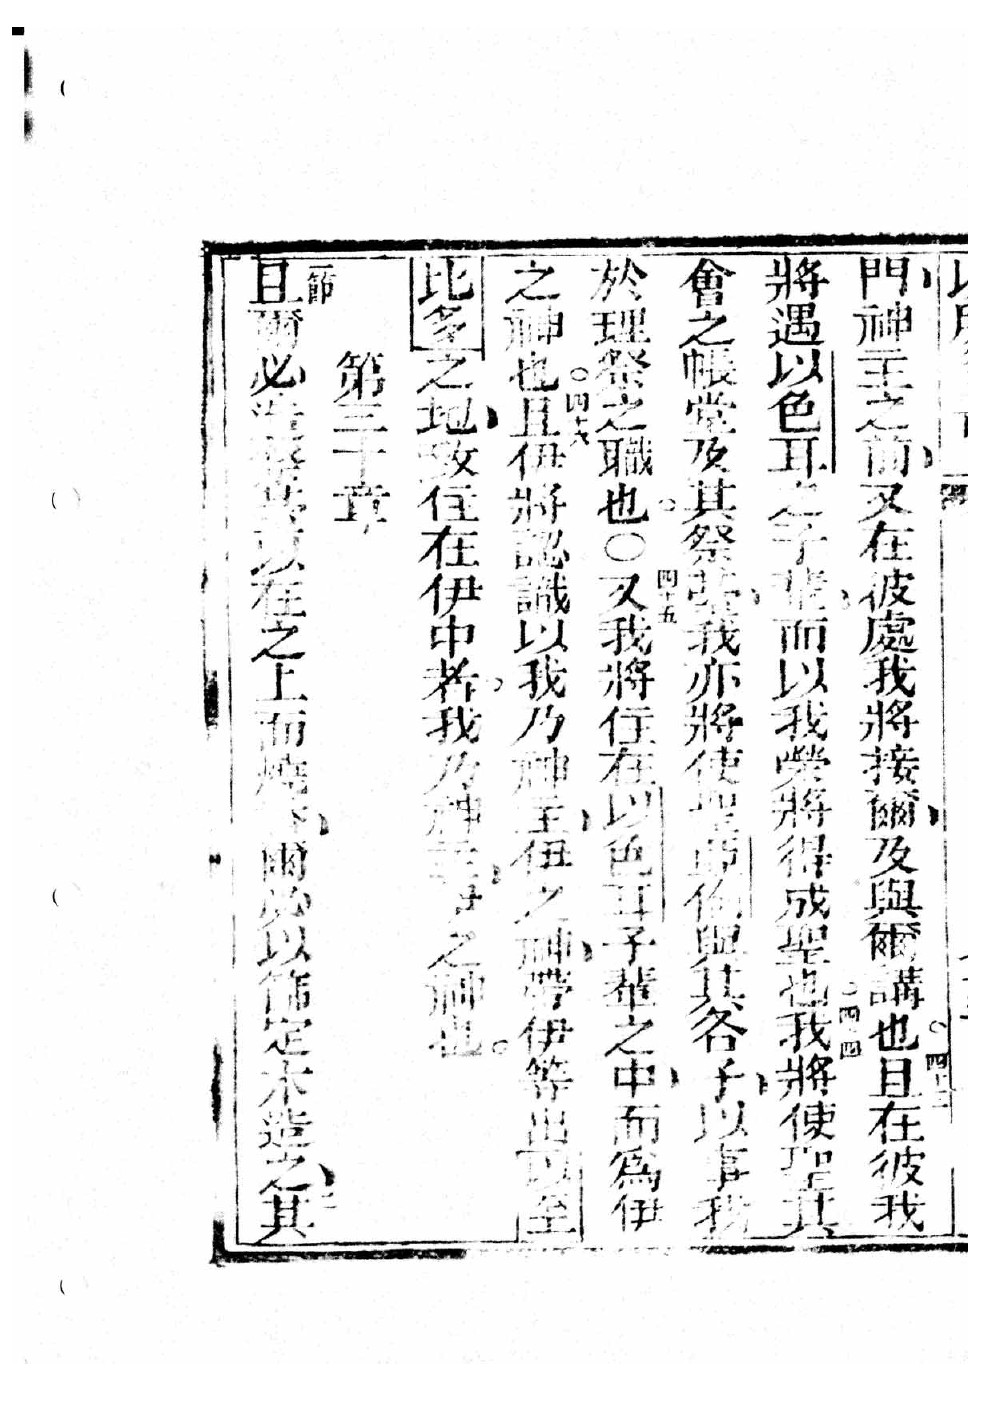 門神主之前又在彼處我將接爾及與爾講也四十三且在彼我
將遇以色耳之子輩而以我榮將得成聖也四四我將使聖其
會之帳堂及其祭臺我亦將使聖亞倫與其各子以事我
於理祭之職也〇四十五又我將住在以色耳子輩之中而為伊
之神也四十六且伊將認識以我乃神主伊之神帶伊等出以至
比多之地致住在伊中者我乃神主伊之神也
第三十章
一節且爾必造祭臺以在之上而燒香爾必以信定木造之二其